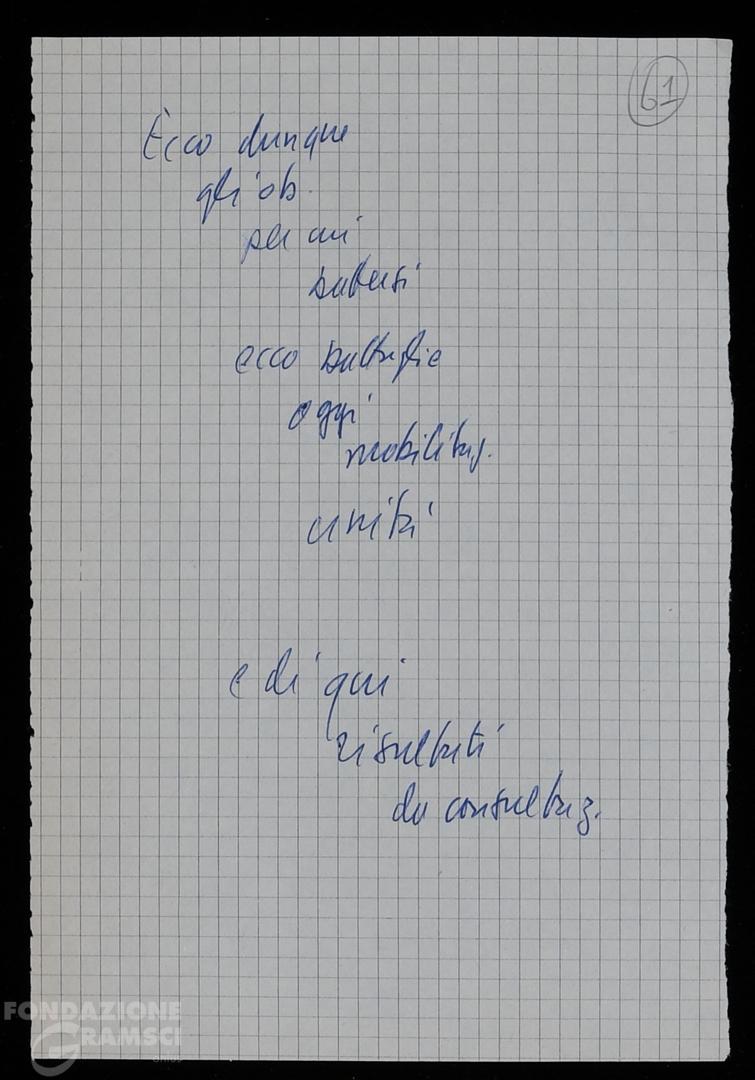 61
Ecco dunque
gli ob.
per cui
battersi
ecco battaglie
oggi
mobilitaz.
unità
e di qui
risultati
da consultaz.
FONDAZIONE
GRAMSCI
onlus